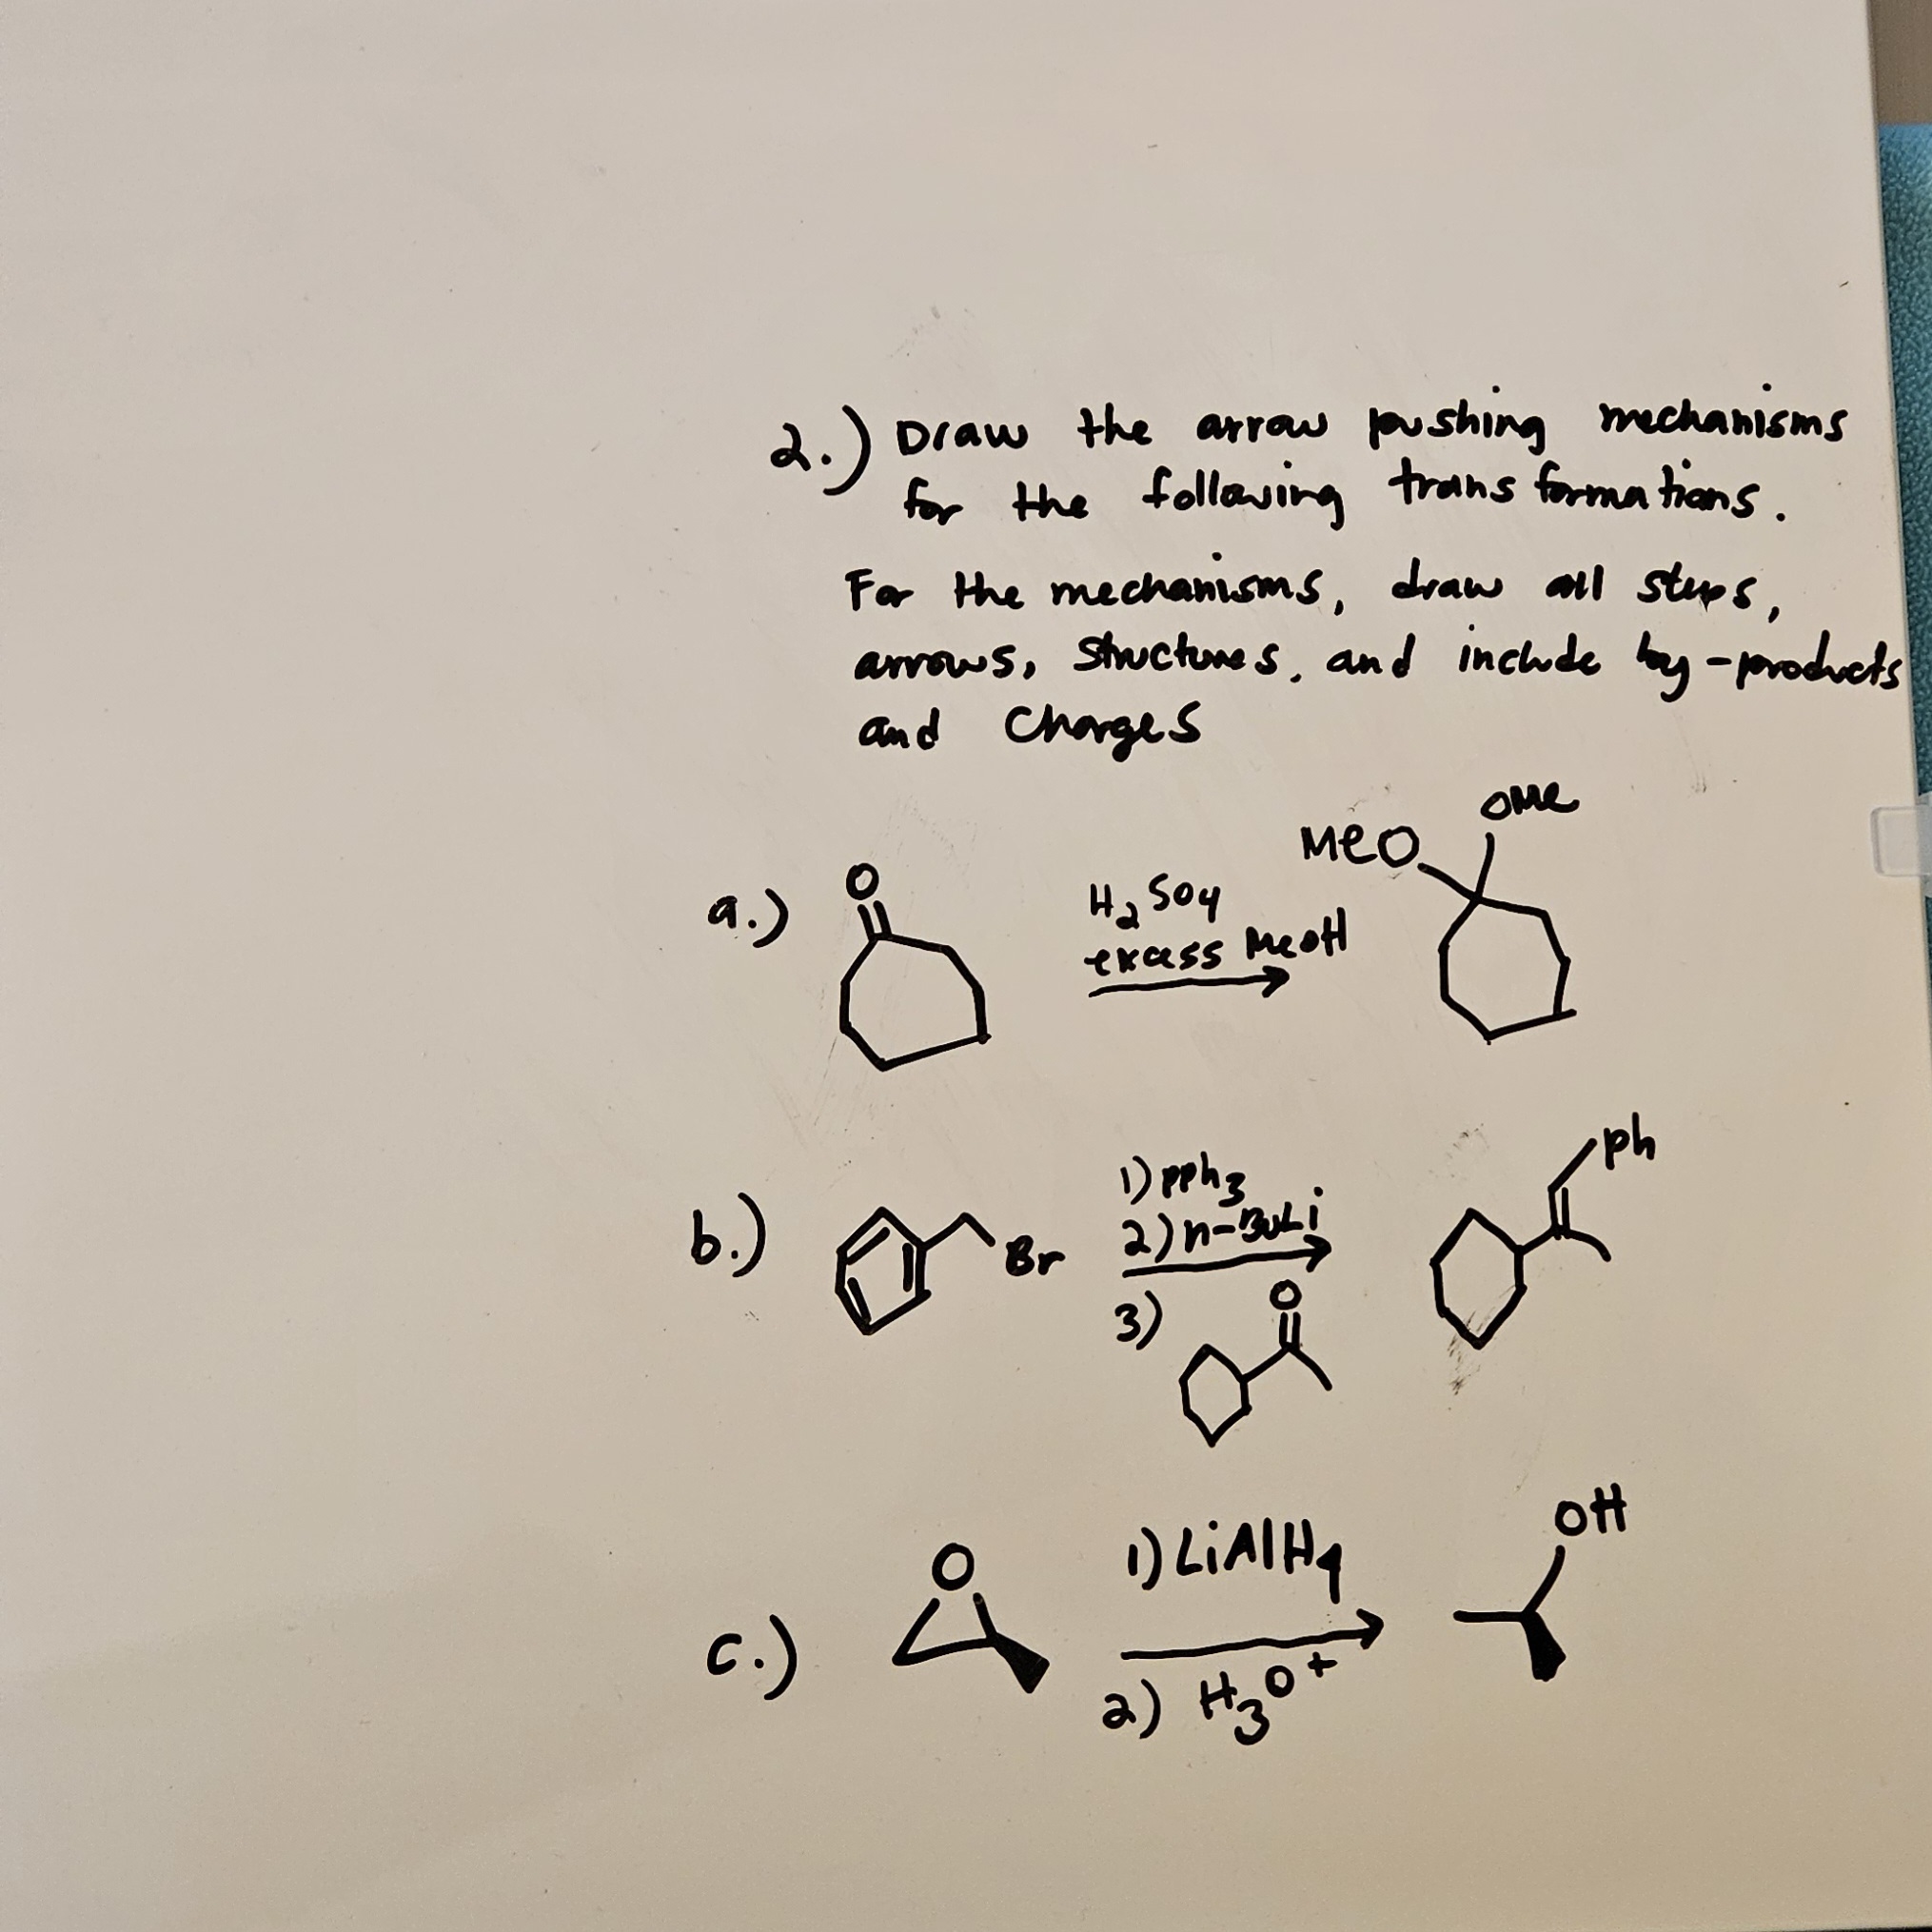 2.) Draw the arrow pushing mechanisms
for the following transformations.
For the mechanisms, draw all steps,
arrows, structures, and include by-products
and Charges
a.)
O
H2SO4
excess MeOH
MeO
OMe
b.)
Br
1) pph3
2) n-BuLi
3)
O
ph
c.)
O
1) LiAlH4
2) H3O+
OH